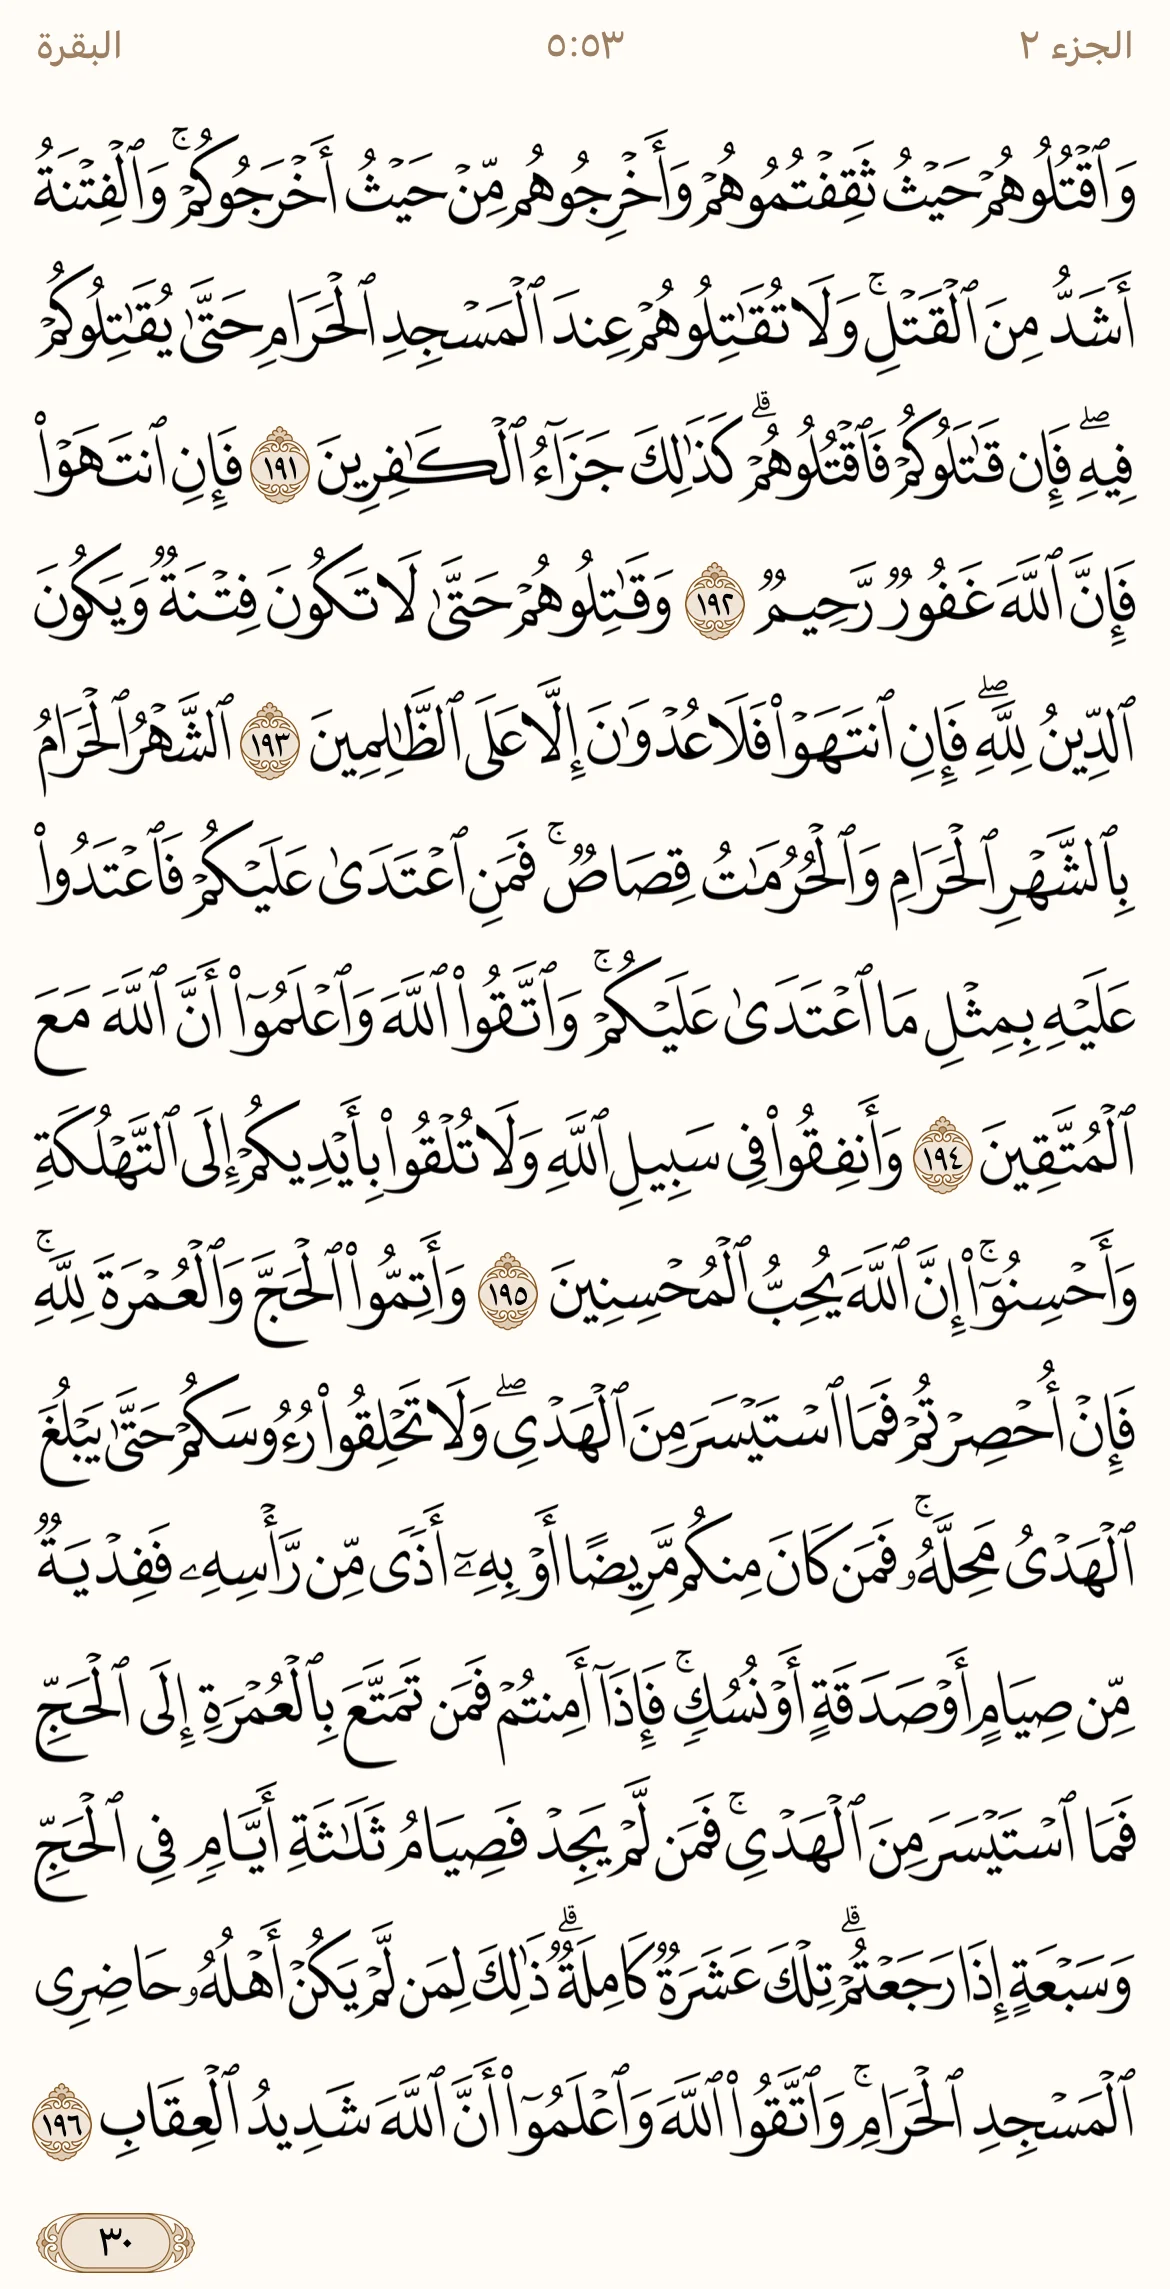 الجزء ٢
٥:٥٣
البقرة
وَٱقۡتُلُوهُمۡ حَيۡثُ ثَقِفۡتُمُوهُمۡ وَأَخۡرِجُوهُم مِّنۡ حَيۡثُ أَخۡرَجُوكُمۡۚ وَٱلۡفِتۡنَةُ
أَشَدُّ مِنَ ٱلۡقَتۡلِۚ وَلَا تُقَٰتِلُوهُمۡ عِندَ ٱلۡمَسۡجِدِ ٱلۡحَرَامِ حَتَّىٰ يُقَٰتِلُوكُمۡ
فِيهِۖ فَإِن قَٰتَلُوكُمۡ فَٱقۡتُلُوهُمۡۗ كَذَٰلِكَ جَزَآءُ ٱلۡكَٰفِرِينَ ١٩١ فَإِنِ ٱنتَهَوۡاْ
فَإِنَّ ٱللَّهَ غَفُورٞ رَّحِيمٞ ١٩٢ وَقَٰتِلُوهُمۡ حَتَّىٰ لَا تَكُونَ فِتۡنَةٞ وَيَكُونَ
ٱلدِّينُ لِلَّهِۖ فَإِنِ ٱنتَهَوۡاْ فَلَا عُدۡوَٰنَ إِلَّا عَلَى ٱلظَّٰلِمِينَ ١٩٣ ٱلشَّهۡرُ ٱلۡحَرَامُ
بِٱلشَّهۡرِ ٱلۡحَرَامِ وَٱلۡحُرُمَٰتُ قِصَاصٞۚ فَمَنِ ٱعۡتَدَىٰ عَلَيۡكُمۡ فَٱعۡتَدُواْ
عَلَيۡهِ بِمِثۡلِ مَا ٱعۡتَدَىٰ عَلَيۡكُمۡۚ وَٱتَّقُواْ ٱللَّهَ وَٱعۡلَمُوٓاْ أَنَّ ٱللَّهَ مَعَ
ٱلۡمُتَّقِينَ ١٩٤ وَأَنفِقُواْ فِي سَبِيلِ ٱللَّهِ وَلَا تُلۡقُواْ بِأَيۡدِيكُمۡ إِلَى ٱلتَّهۡلُكَةِ
وَأَحۡسِنُوٓاْۚ إِنَّ ٱللَّهَ يُحِبُّ ٱلۡمُحۡسِنِينَ ١٩٥ وَأَتِمُّواْ ٱلۡحَجَّ وَٱلۡعُمۡرَةَ لِلَّهِۚ
فَإِنۡ أُحۡصِرۡتُمۡ فَمَا ٱسۡتَيۡسَرَ مِنَ ٱلۡهَدۡيِۖ وَلَا تَحۡلِقُواْ رُءُوسَكُمۡ حَتَّىٰ يَبۡلُغَ
ٱلۡهَدۡيُ مَحِلَّهُۥۚ فَمَن كَانَ مِنكُم مَّرِيضًا أَوۡ بِهِۦٓ أَذٗى مِّن رَّأۡسِهِۦ فَفِدۡيَةٞ
مِّن صِيَامٍ أَوۡ صَدَقَةٍ أَوۡ نُسُكٖۚ فَإِذَآ أَمِنتُمۡ فَمَن تَمَتَّعَ بِٱلۡعُمۡرَةِ إِلَى ٱلۡحَجِّ
فَمَا ٱسۡتَيۡسَرَ مِنَ ٱلۡهَدۡيِۚ فَمَن لَّمۡ يَجِدۡ فَصِيَامُ ثَلَٰثَةِ أَيَّامٖ فِي ٱلۡحَجِّ
وَسَبۡعَةٍ إِذَا رَجَعۡتُمۡۗ تِلۡكَ عَشَرَةٞ كَامِلَةٞۗ ذَٰلِكَ لِمَن لَّمۡ يَكُنۡ أَهۡلُهُۥ حَاضِرِي
ٱلۡمَسۡجِدِ ٱلۡحَرَامِۚ وَٱتَّقُواْ ٱللَّهَ وَٱعۡلَمُوٓاْ أَنَّ ٱللَّهَ شَدِيدُ ٱلۡعِقَابِ ١٩٦
٣٠